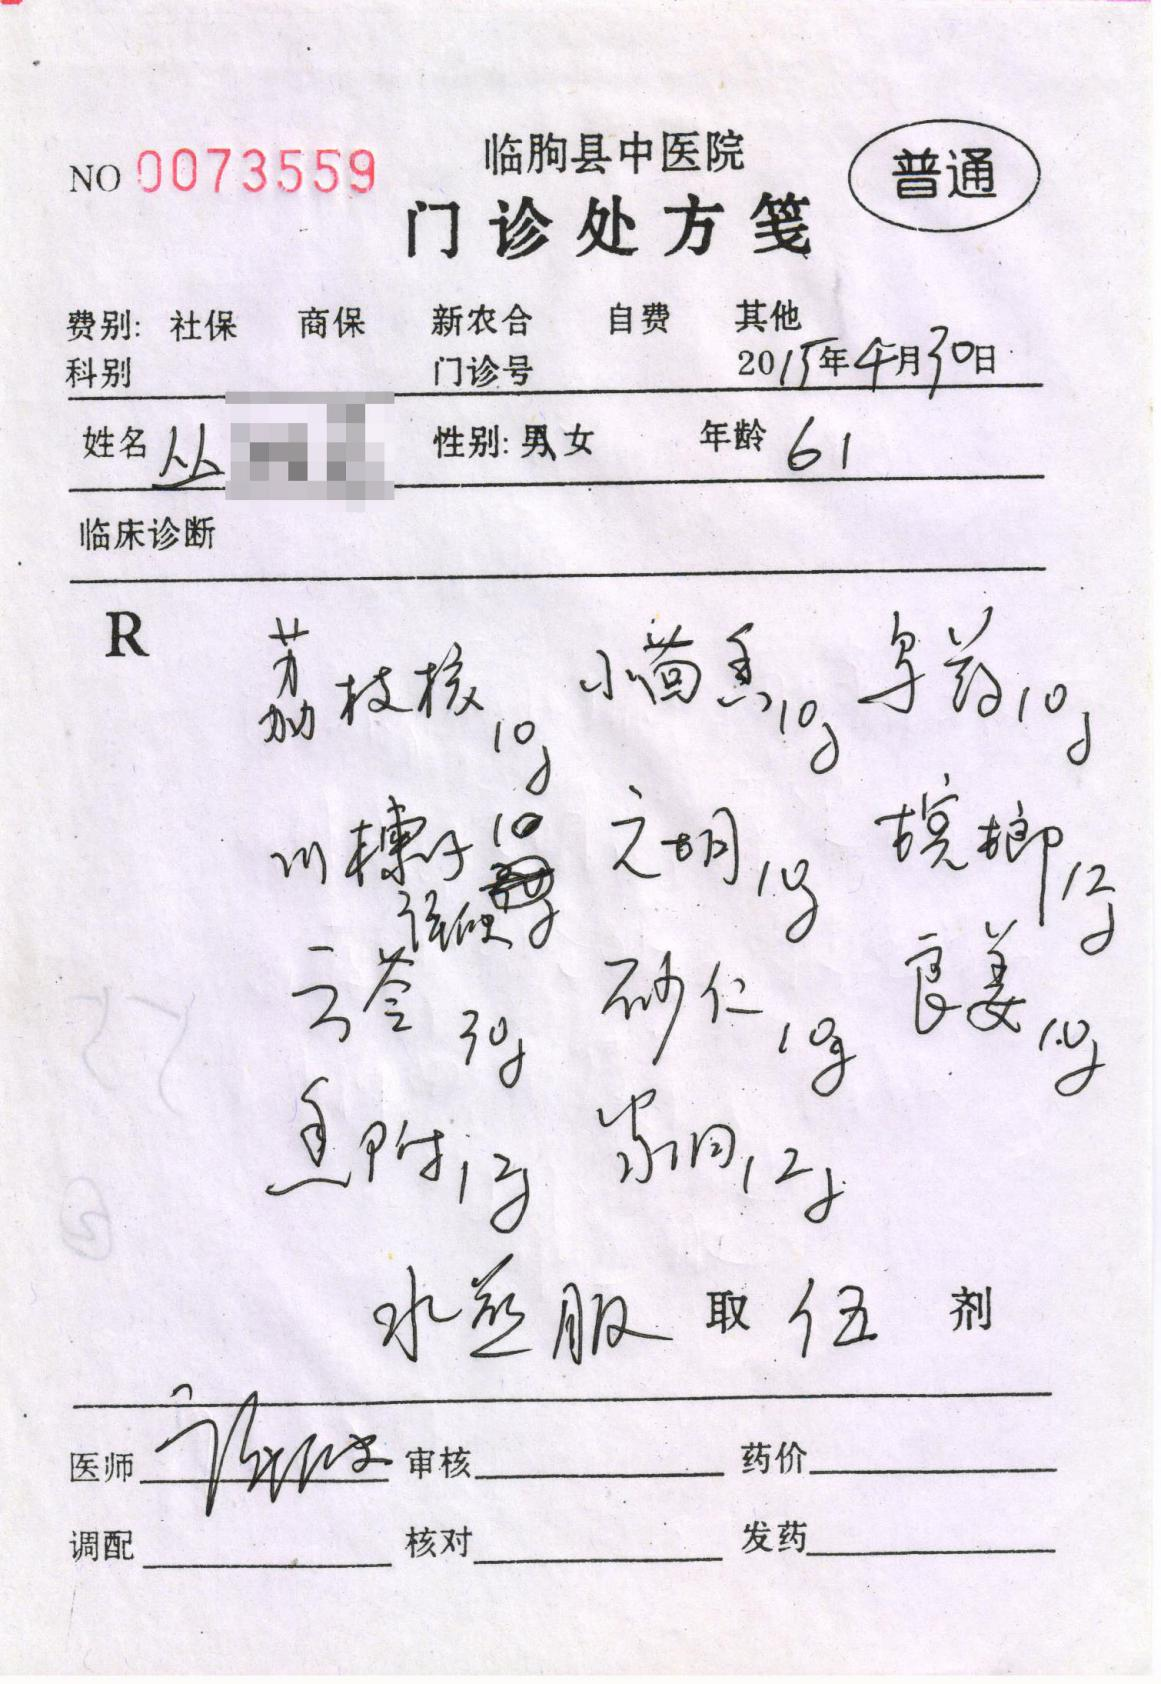 临朐县中医院
NO 0073559
普通
门诊处方笺
费别: 社保 商保 新农合 自费 其他
科别 门诊号 2015年4月30日
姓名 丛 性别: 男 女 年龄 61
临床诊断
R
荔枝核10g 小茴香10g 乌药10g
川楝子10 元胡10g 槟榔12g
云苓30g 砂仁10g 良姜10g
香附12g 12g
水煎服 取 伍 剂
医师 审核 药价
调配 核对 发药